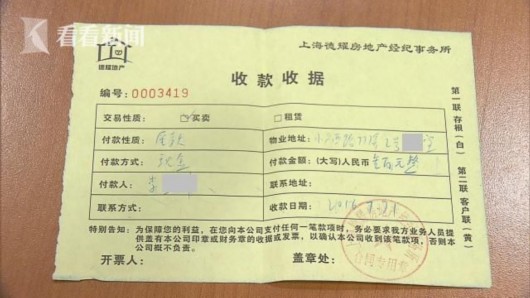 看看新闻
德耀地产
上海德耀房地产经纪事务所
收款收据
编号:0003419
交易性质: 买卖 租赁
付款性质: 物业地址:
付款方式: 现金 付款金额:(大写)人民币
付款人: 李 联系地址:
联系方式: 收款日期:
特别告知:为保障您的利益,在您向本公司支付任何一笔款项时,务必要求我方业务人员提
供盖有本公司印章或财务章的收据或发票,以确认本公司收到该笔款项,否则本
公司概不负责。
开票人: 盖章处:
合同专用章
第一联 存根(白) 第二联 客户联(黄)